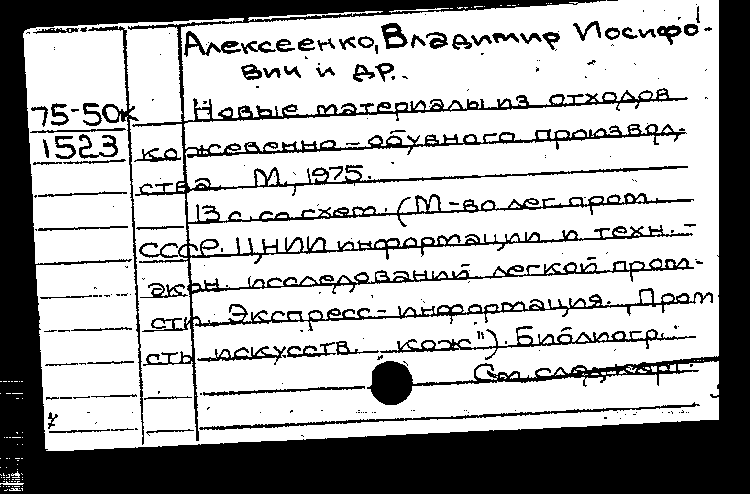 Алексеенко, Владимир Иосифо-
вич и др.
75-50к Новые материалы из отходов
1523 кожевенно-обувного производ-
ства. М., 1975.
13 с. со схем. (М-во лег. пром.
СССР. ЦНИИ информации и техн.-
экон. исследований легкой пром-
сти. Экспресс-информация. „Пром
сть искусств. кож"). Библиогр.:
См. след. карт.